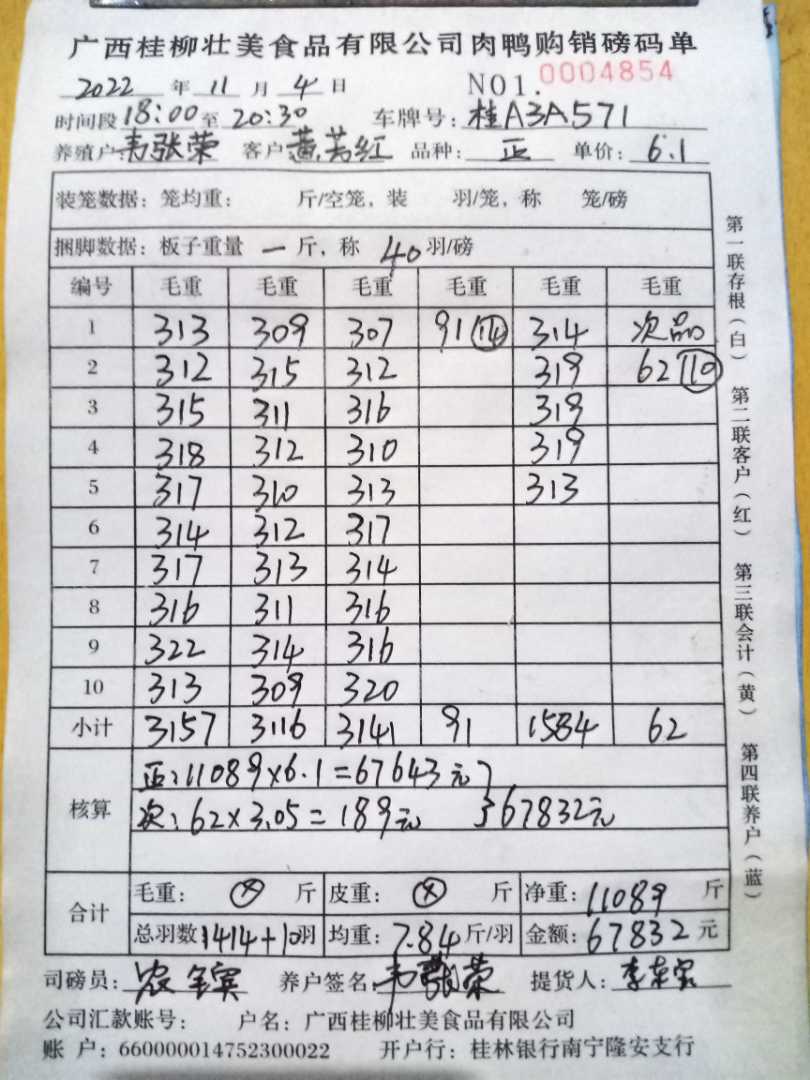 广西桂柳壮美食品有限公司肉鸭购销磅码单
2022 年 11 月 4 日 NO1. 0004854
时间段 18:00 至 20:30 车牌号: 桂A3A571
养殖户: 韦张荣 客户: 黄芳红 品种: 正 单价: 6.1
装笼数据: 笼均重: 斤/空笼, 装 羽/笼, 称 笼/磅
捆脚数据: 板子重量 一 斤, 称 40 羽/磅
编号 毛重 毛重 毛重 毛重 毛重 毛重
1 313 309 307 91 (14) 314 次品
2 312 315 312 319 62 (10)
3 315 311 316 319
4 318 312 310 319
5 317 310 313 313
6 314 312 317
7 317 313 314
8 316 311 316
9 322 314 316
10 313 309 320
小计 3157 3116 3141 91 1584 62
核算
正: 11089×6.1=67643元
次: 62×3.05=189元 }67832元
合计
毛重: ⊗ 斤 皮重: ⊗ 斤 净重: 11089 斤
总羽数 1414+10羽 均重: 7.84 斤/羽 金额: 67832 元
司磅员: 农 养户签名: 韦张荣 提货人: 李
公司汇款账号: 户名: 广西桂柳壮美食品有限公司
账 户: 660000014752300022 开户行: 桂林银行南宁隆安支行
第一联存根(白) 第二联客户(红) 第三联会计(黄) 第四联养户(蓝)